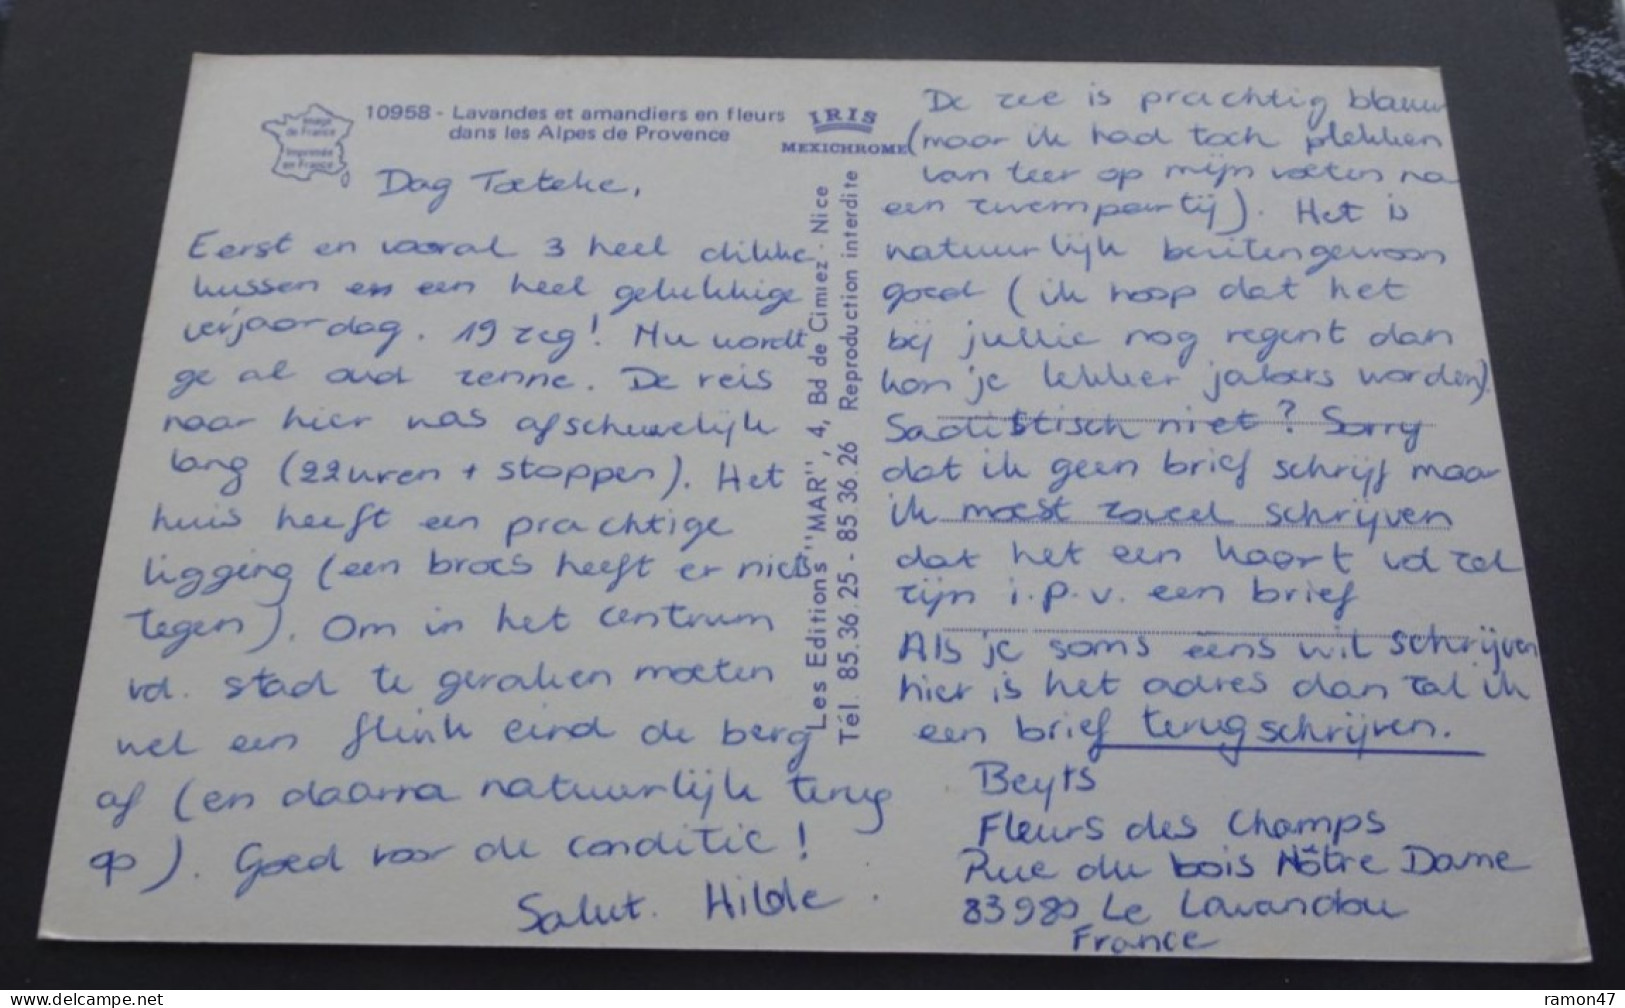 10958 - Lavandes et amandiers en fleurs
dans les Alpes de Provence
Image
de France
Imprimée
en France
IRIS
MEXICHROME
Les Editions "MAR", 4, Bd de Cimiez - Nice
Tél. 85.36.25 - 85.36.26 Reproduction interdite
Dag Toeteke,
Eerst en vooral 3 heel dikke
kussen en een heel gelukkige
verjaardag. 19 zeg! Nu wordt
ge al oud zenne. De reis
naar hier was afschuwelijk
lang (22 uren + stoppen). Het
huis heeft een prachtige
ligging (een broes heeft er niets
tegen). Om in het centrum
vd. stad te geraken moeten
wel een flink eind de berg
af (en daarna natuurlijk terug
op). Goed voor de conditie!
Salut. Hilde.
De zee is prachtig blauw
(maar ik had toch plekken
van teer op mijn voeten na
een zwempartij). Het is
natuurlijk buitengewoon
goed (ik hoop dat het
bij jullie nog regent dan
kan je lekker jaloers worden).
Sadistisch niet? Sorry
dat ik geen brief schrijf maar
ik moest zoveel schrijven
dat het een kaart vd zal
zijn i.p.v. een brief
Als je soms eens wil schrijven
hier is het adres dan zal ik
een brief terugschrijven.
Beyts
Fleurs des Champs
Rue du bois Nôtre Dame
83980 Le Lavandou
France
ramon47